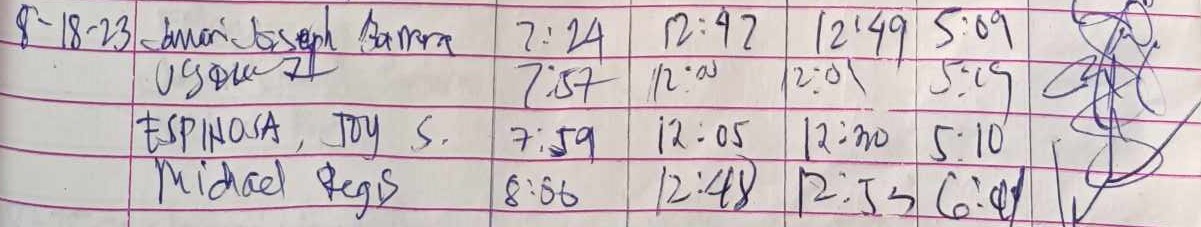 8-18-23 Joseph 7:24 12:47 12:49 5:09
7:57 12:00 12:01 5:19
ESPINOSA, JOY S. 7:59 12:05 12:30 5:10
Michael Regis 8:06 12:48 12:55